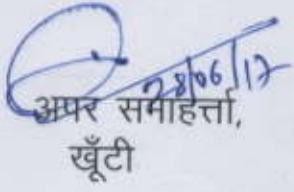 28/06/17
अपर समाहर्त्ता,
खूँटी